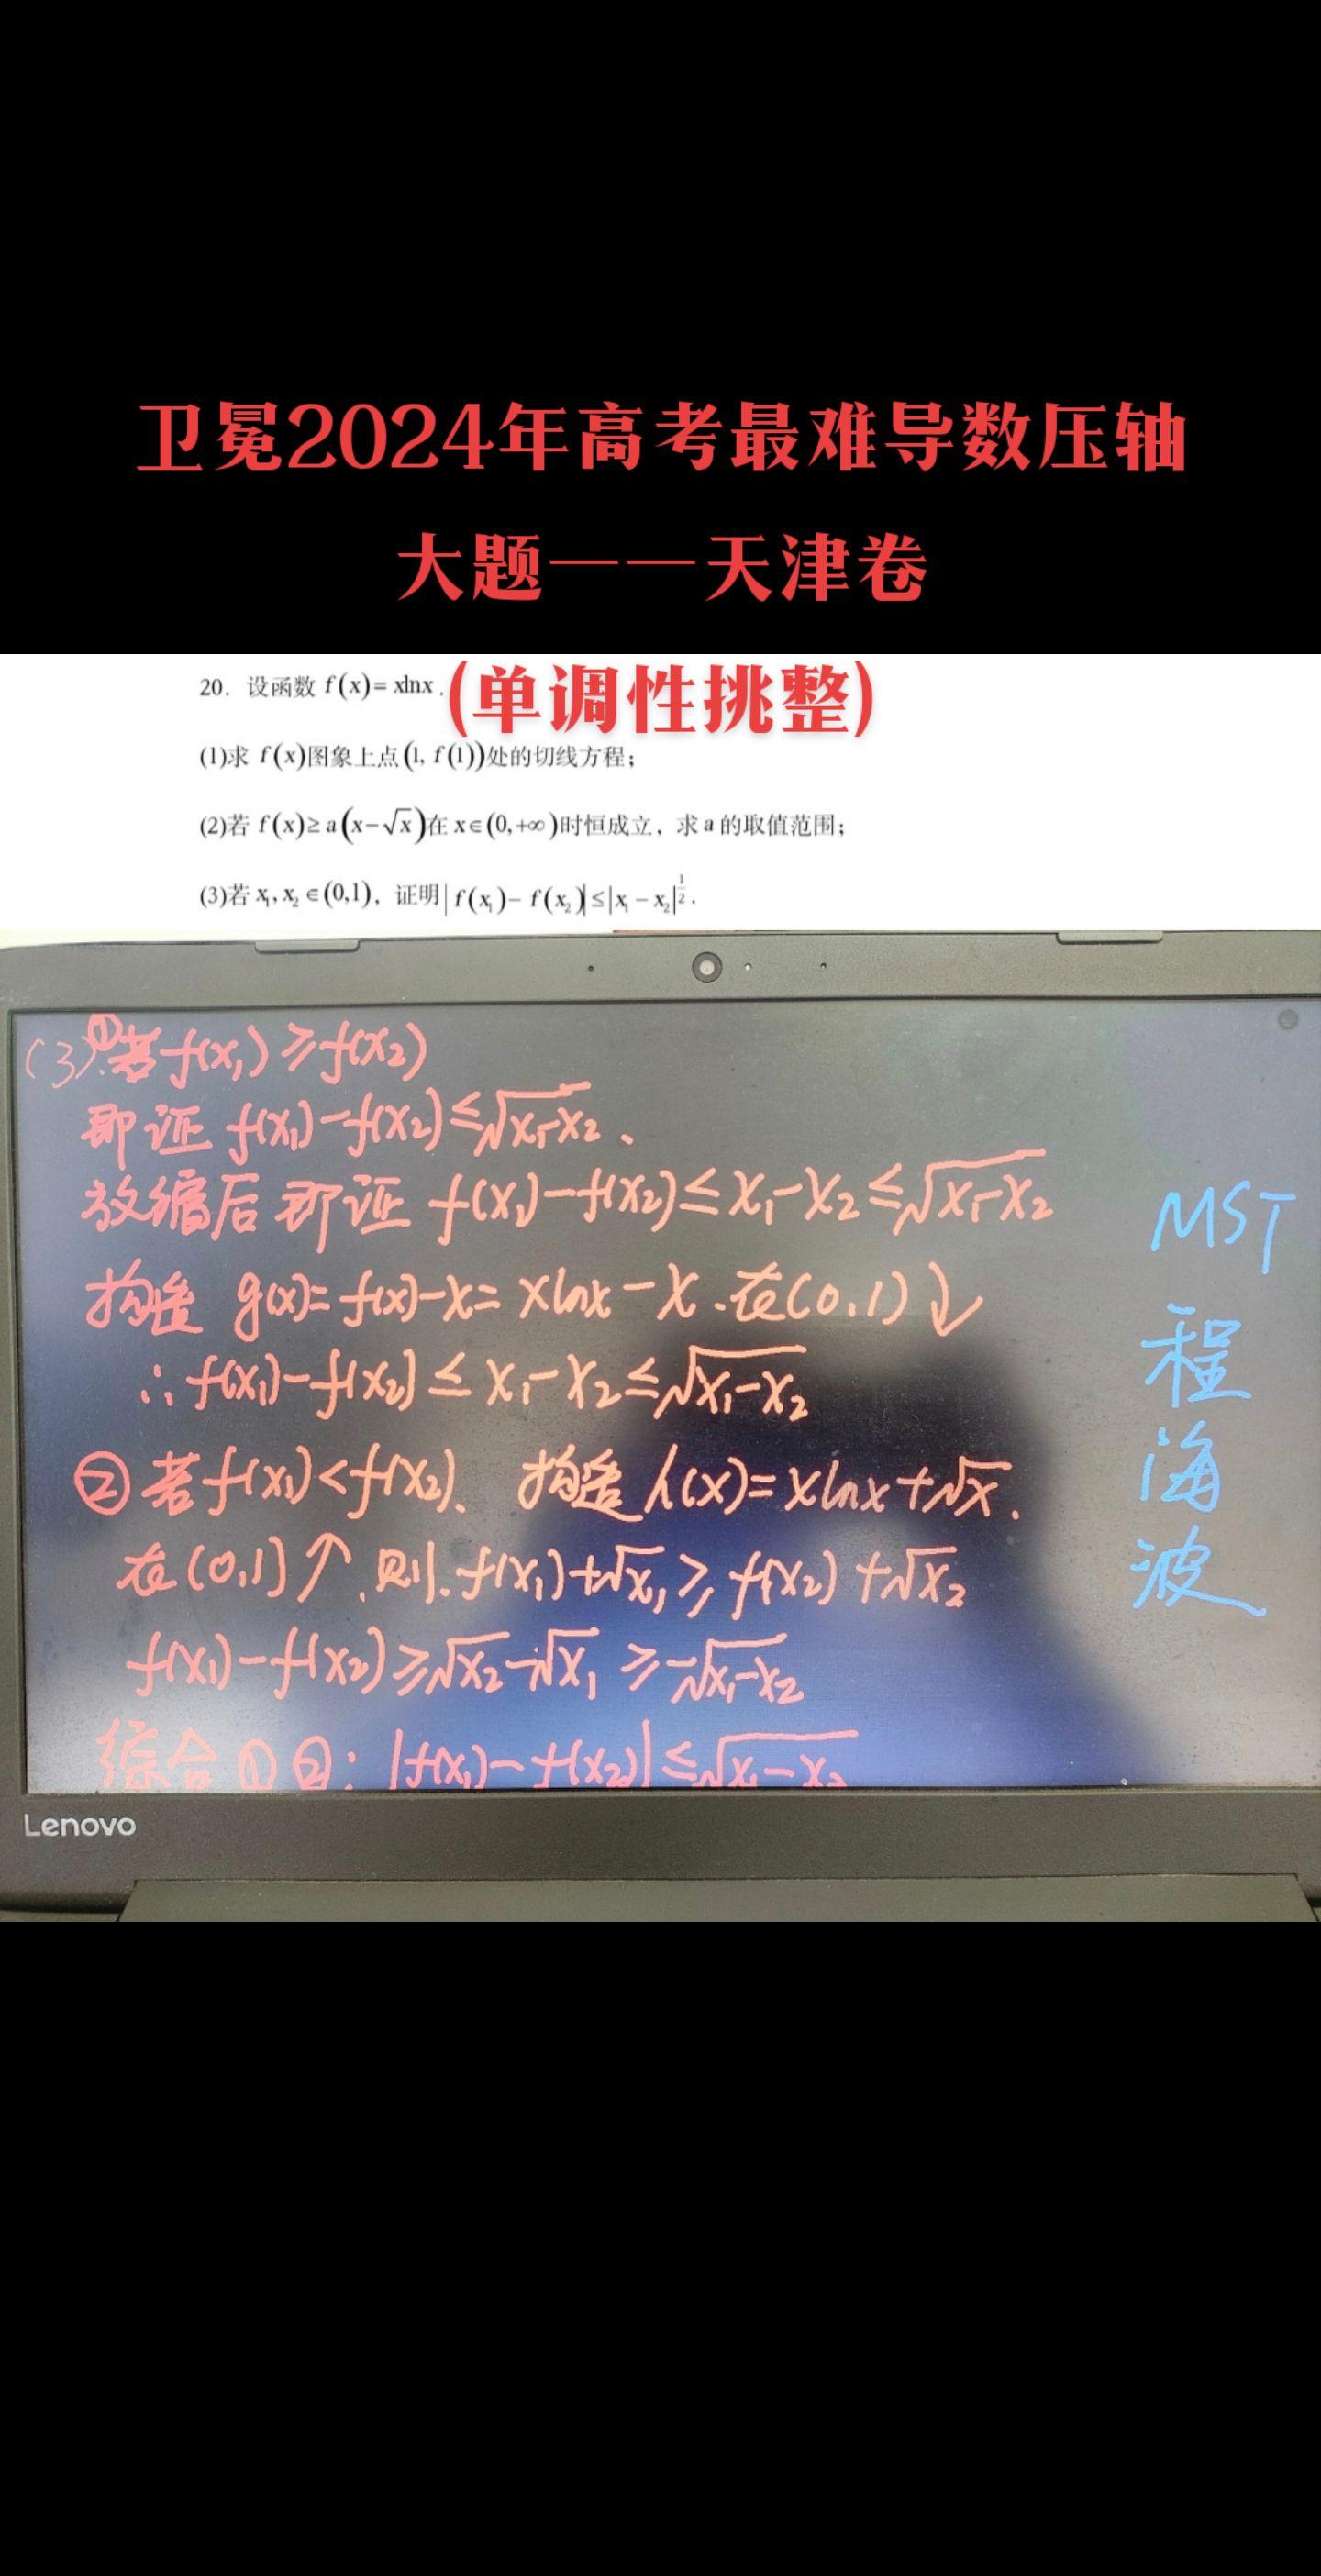 卫冕2024年高考最难导数压轴
大题——天津卷
(单调性挑整)
20. 设函数 f(x)=xlnx.
(1)求 f(x)图象上点(1, f(1))处的切线方程;
(2)若 f(x)≥a(x-√x)在 x∈(0,+∞)时恒成立, 求 a 的取值范围;
(3)若 x₁,x₂∈(0,1), 证明|f(x₁)-f(x₂)|≤|x₁-x₂|^(1/2).
(3)①若f(x₁)≥f(x₂)
即证 f(x₁)-f(x₂)≤√(x₁-x₂)、
放缩后即证 f(x₁)-f(x₂)≤x₁-x₂≤√(x₁-x₂)
构造 g(x)=f(x)-x=xlnx-x.在(0,1)↓
∴f(x₁)-f(x₂)≤x₁-x₂≤√(x₁-x₂)
②若f(x₁)<f(x₂)、构造h(x)=xlnx+√x.
在(0,1)↑.则.f(x₁)+√x₁≥f(x₂)+√x₂
f(x₁)-f(x₂)≥√x₂-√x₁≥-√(x₁-x₂)
综合①②:|f(x₁)-f(x₂)|≤√(x₁-x₂)
MST
程
海
波
Lenovo